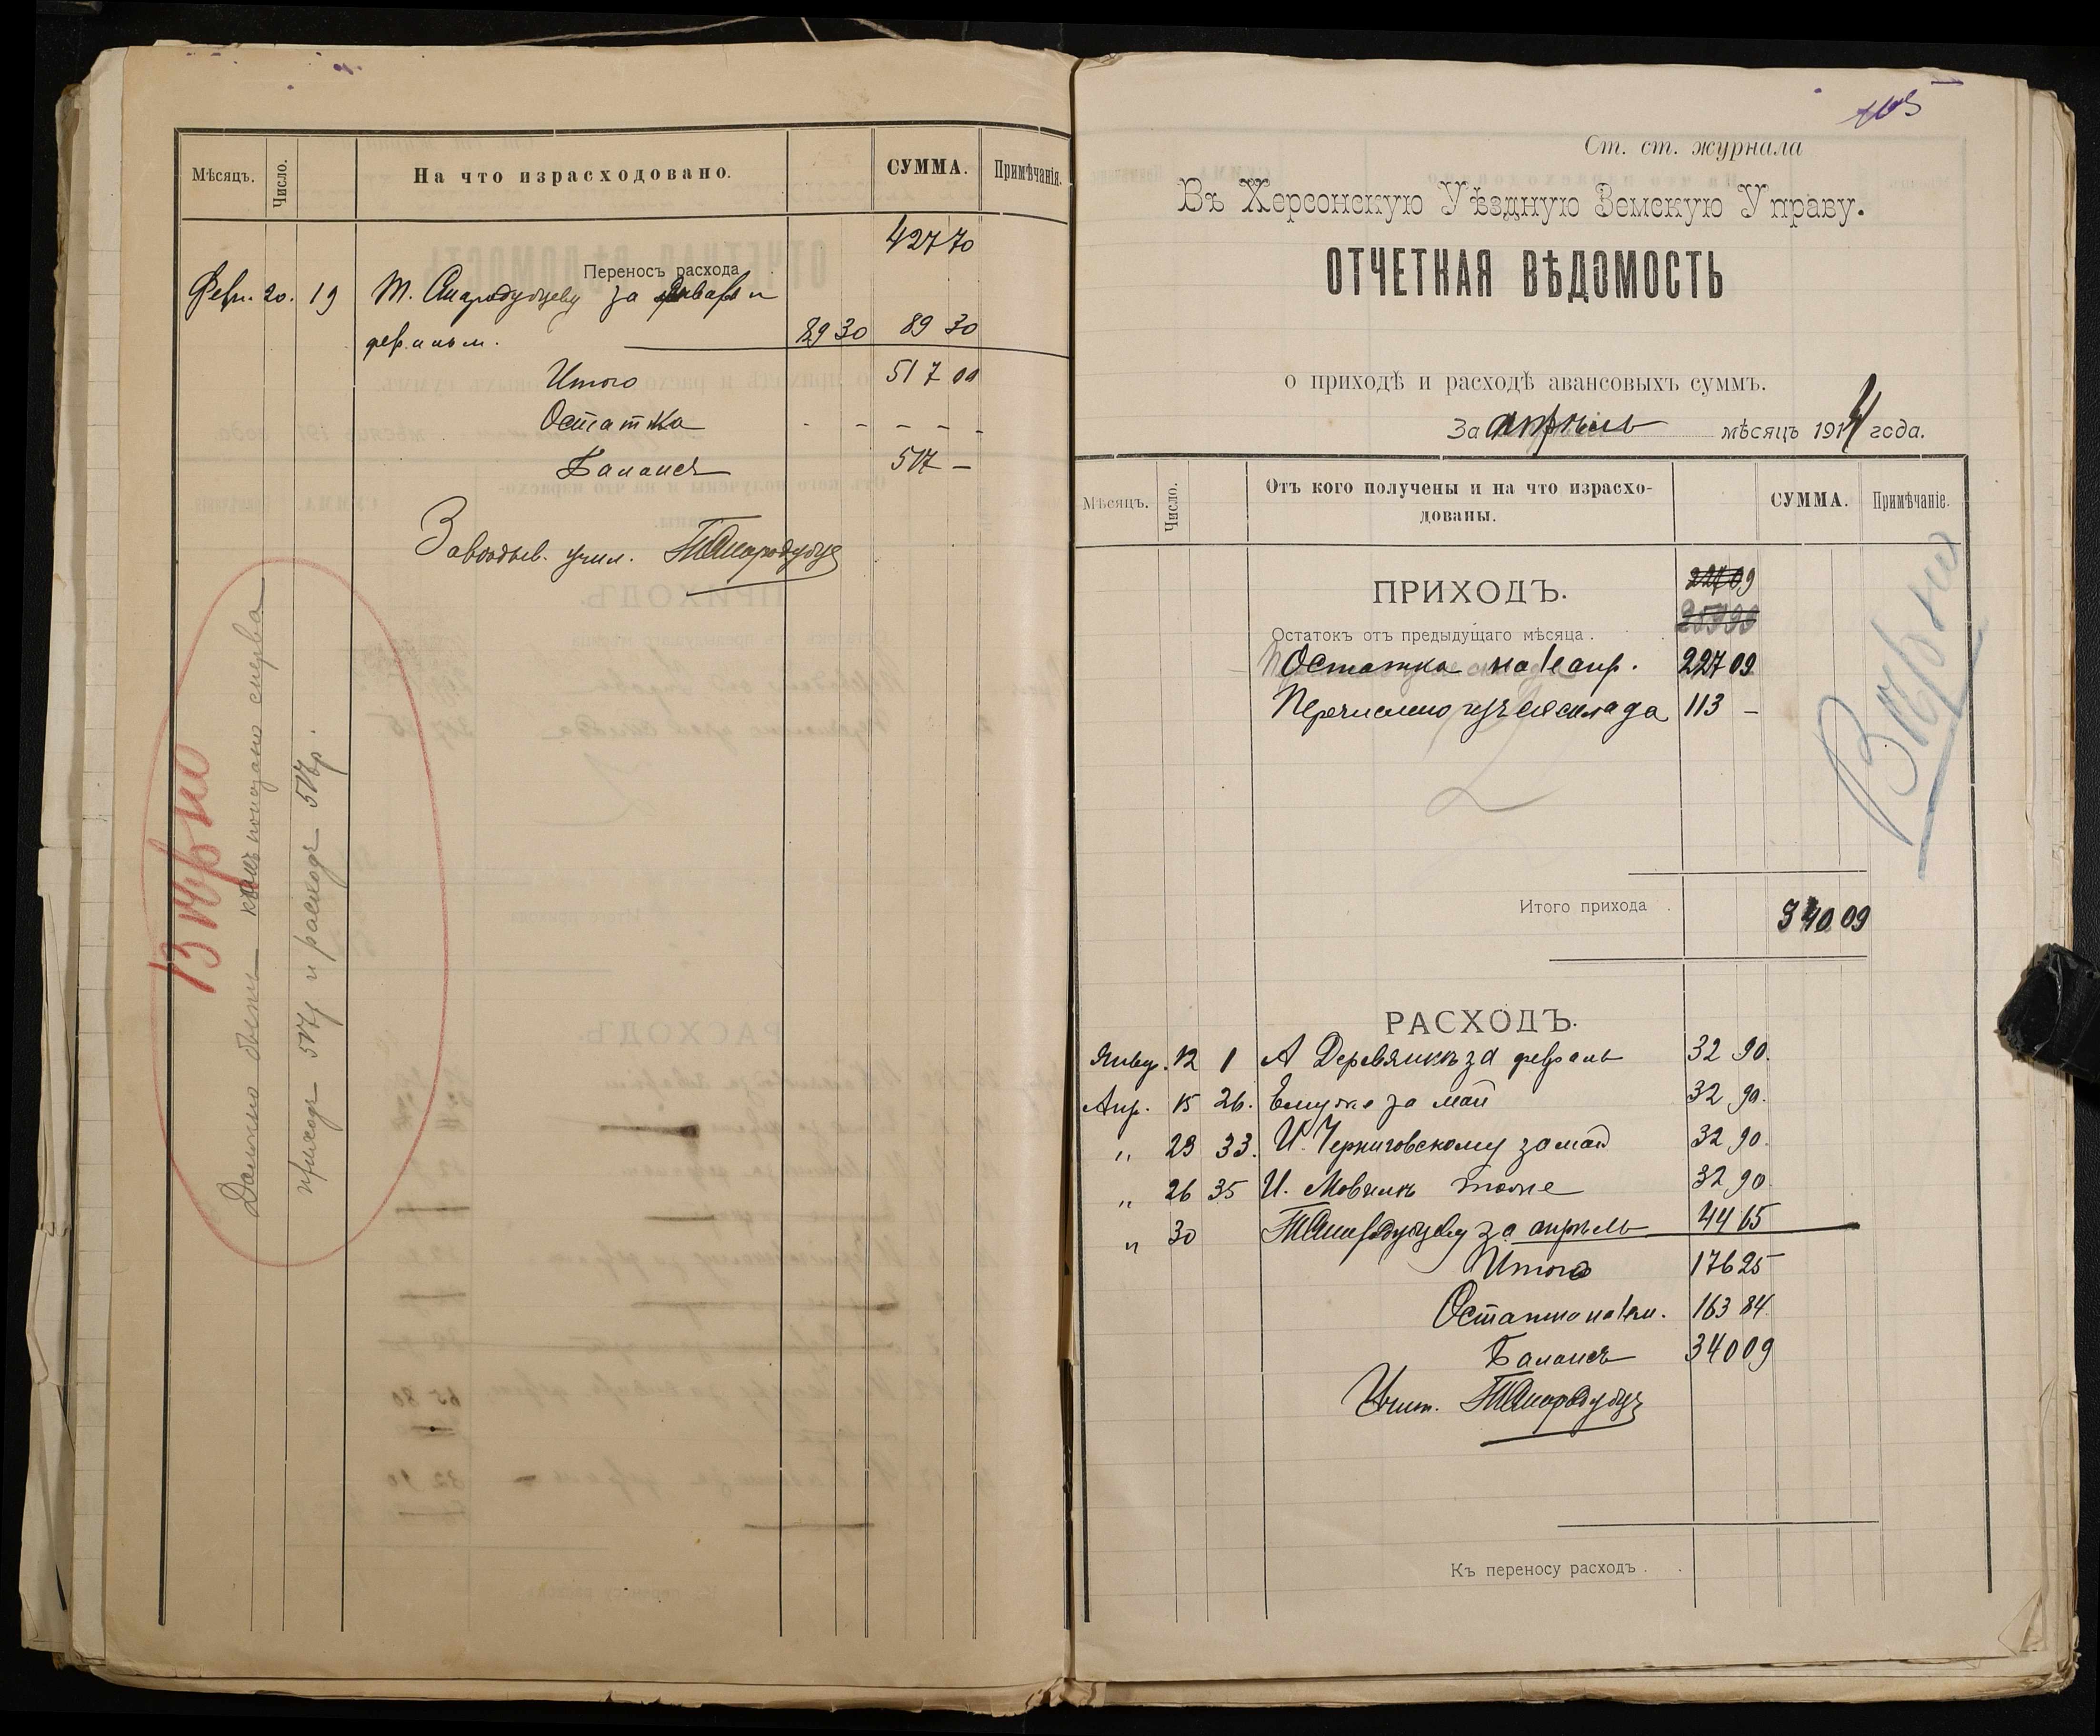 Мѣсяцъ. Число. На что израсходовано. СУММА. Примѣчанія.
427 70
Переносъ расхода
Февр. 20. 19 Т. Стародубцеву за январь и
89 30 89 30
Итого 517 00
Остатка - - - - -
Балансъ 517 -
Завѣдыв. учил. ТСтародубце
Вѣрно
Должно быть показано сперва
приходъ 517р и расходъ 517р.
103
Ст. ст. журнала
Въ Херсонскую Уѣздную Земскую Управу.
ОТЧЕТНАЯ ВѢДОМОСТЬ
о приходѣ и расходѣ авансовыхъ суммъ.
За апрѣль мѣсяцъ 1914 года.
Мѣсяцъ. Число. Отъ кого получены и на что израсхо-
дованы. СУММА. Примѣчаніе.
ПРИХОДЪ.
227 09
Остатокъ отъ предыдущаго мѣсяца .
Остатка на 1е апр. 227 09
Перечислено изъ склада 113 -
Вѣрно
Итого прихода . 340 09
РАСХОДЪ.
Январ. 12 1 А Деревянкѣ за февраль 32 90.
Апр. 15 26. Ему же за май 32 90.
" 23 33. И. Черниговскому за май 32 90.
" 26 35 И. Мовчанъ тоже 32 90.
" 30 ТСтародубцеву за апрѣль 44 65
Итого 176 25
Остатка на 1е м. 163 84.
Балансъ 340 09
Учит. ТСтародубце
Къ переносу расходъ . .